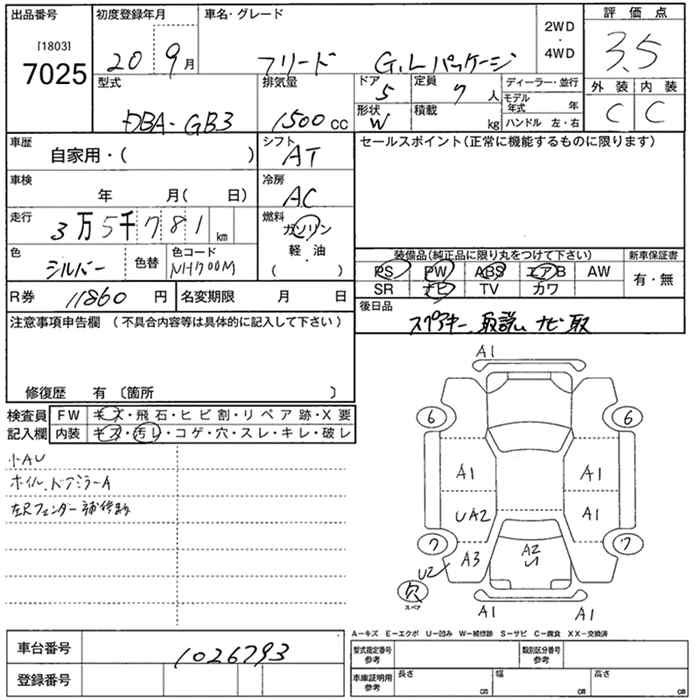 出品番号
[1803]
7025
初度登録年月
20 9月
車名・グレード
フリード G.Lパッケージ
2WD
・
4WD
評価点
3.5
外装 内装
C C
型式
DBA-GB3
排気量
1500cc
ドア
5
定員
7人
形状
W
積載
kg
ディーラー・並行
モデル年式 年
ハンドル 左・右
車歴
自家用・( )
シフト
AT
セールスポイント(正常に機能するものに限ります)
車検
年 月( 日)
冷房
AC
走行
3万5千781km
燃料
ガソリン
軽・油
( )
色
シルバー
色替
色コード
NH700M
装備品(純正品に限り丸をつけて下さい)
PS PW ABS エアB AW
SR ナビ TV カワ
新車保証書
有・無
R券 11860円
名変期限 月 日
後日品
スペアキー、取説、ナビ取
注意事項申告欄(不具合内容等は具体的に記入して下さい)
修復歴 有〔箇所 〕
検査員
記入欄
FW キズ・飛石・ヒビ割・リペア跡・X要
内装 キズ・汚レ・コゲ・穴・スレ・キレ・破レ
小AU
ホイル、ドアミラーA
左Rフェンダー補修跡
A1
6 6
A1 A1
UA2 A1
7 A3 A2 7
U2 U
欠
スペア
A1 A1
A-キズ E-エクボ U-凹み W-補修跡 S-サビ C-腐食 XX-交換済
車台番号
1026793
登録番号
型式指定番号
参考
類別区分番号
参考
車庫証明用
参考
長さ cm
幅 cm
高さ cm